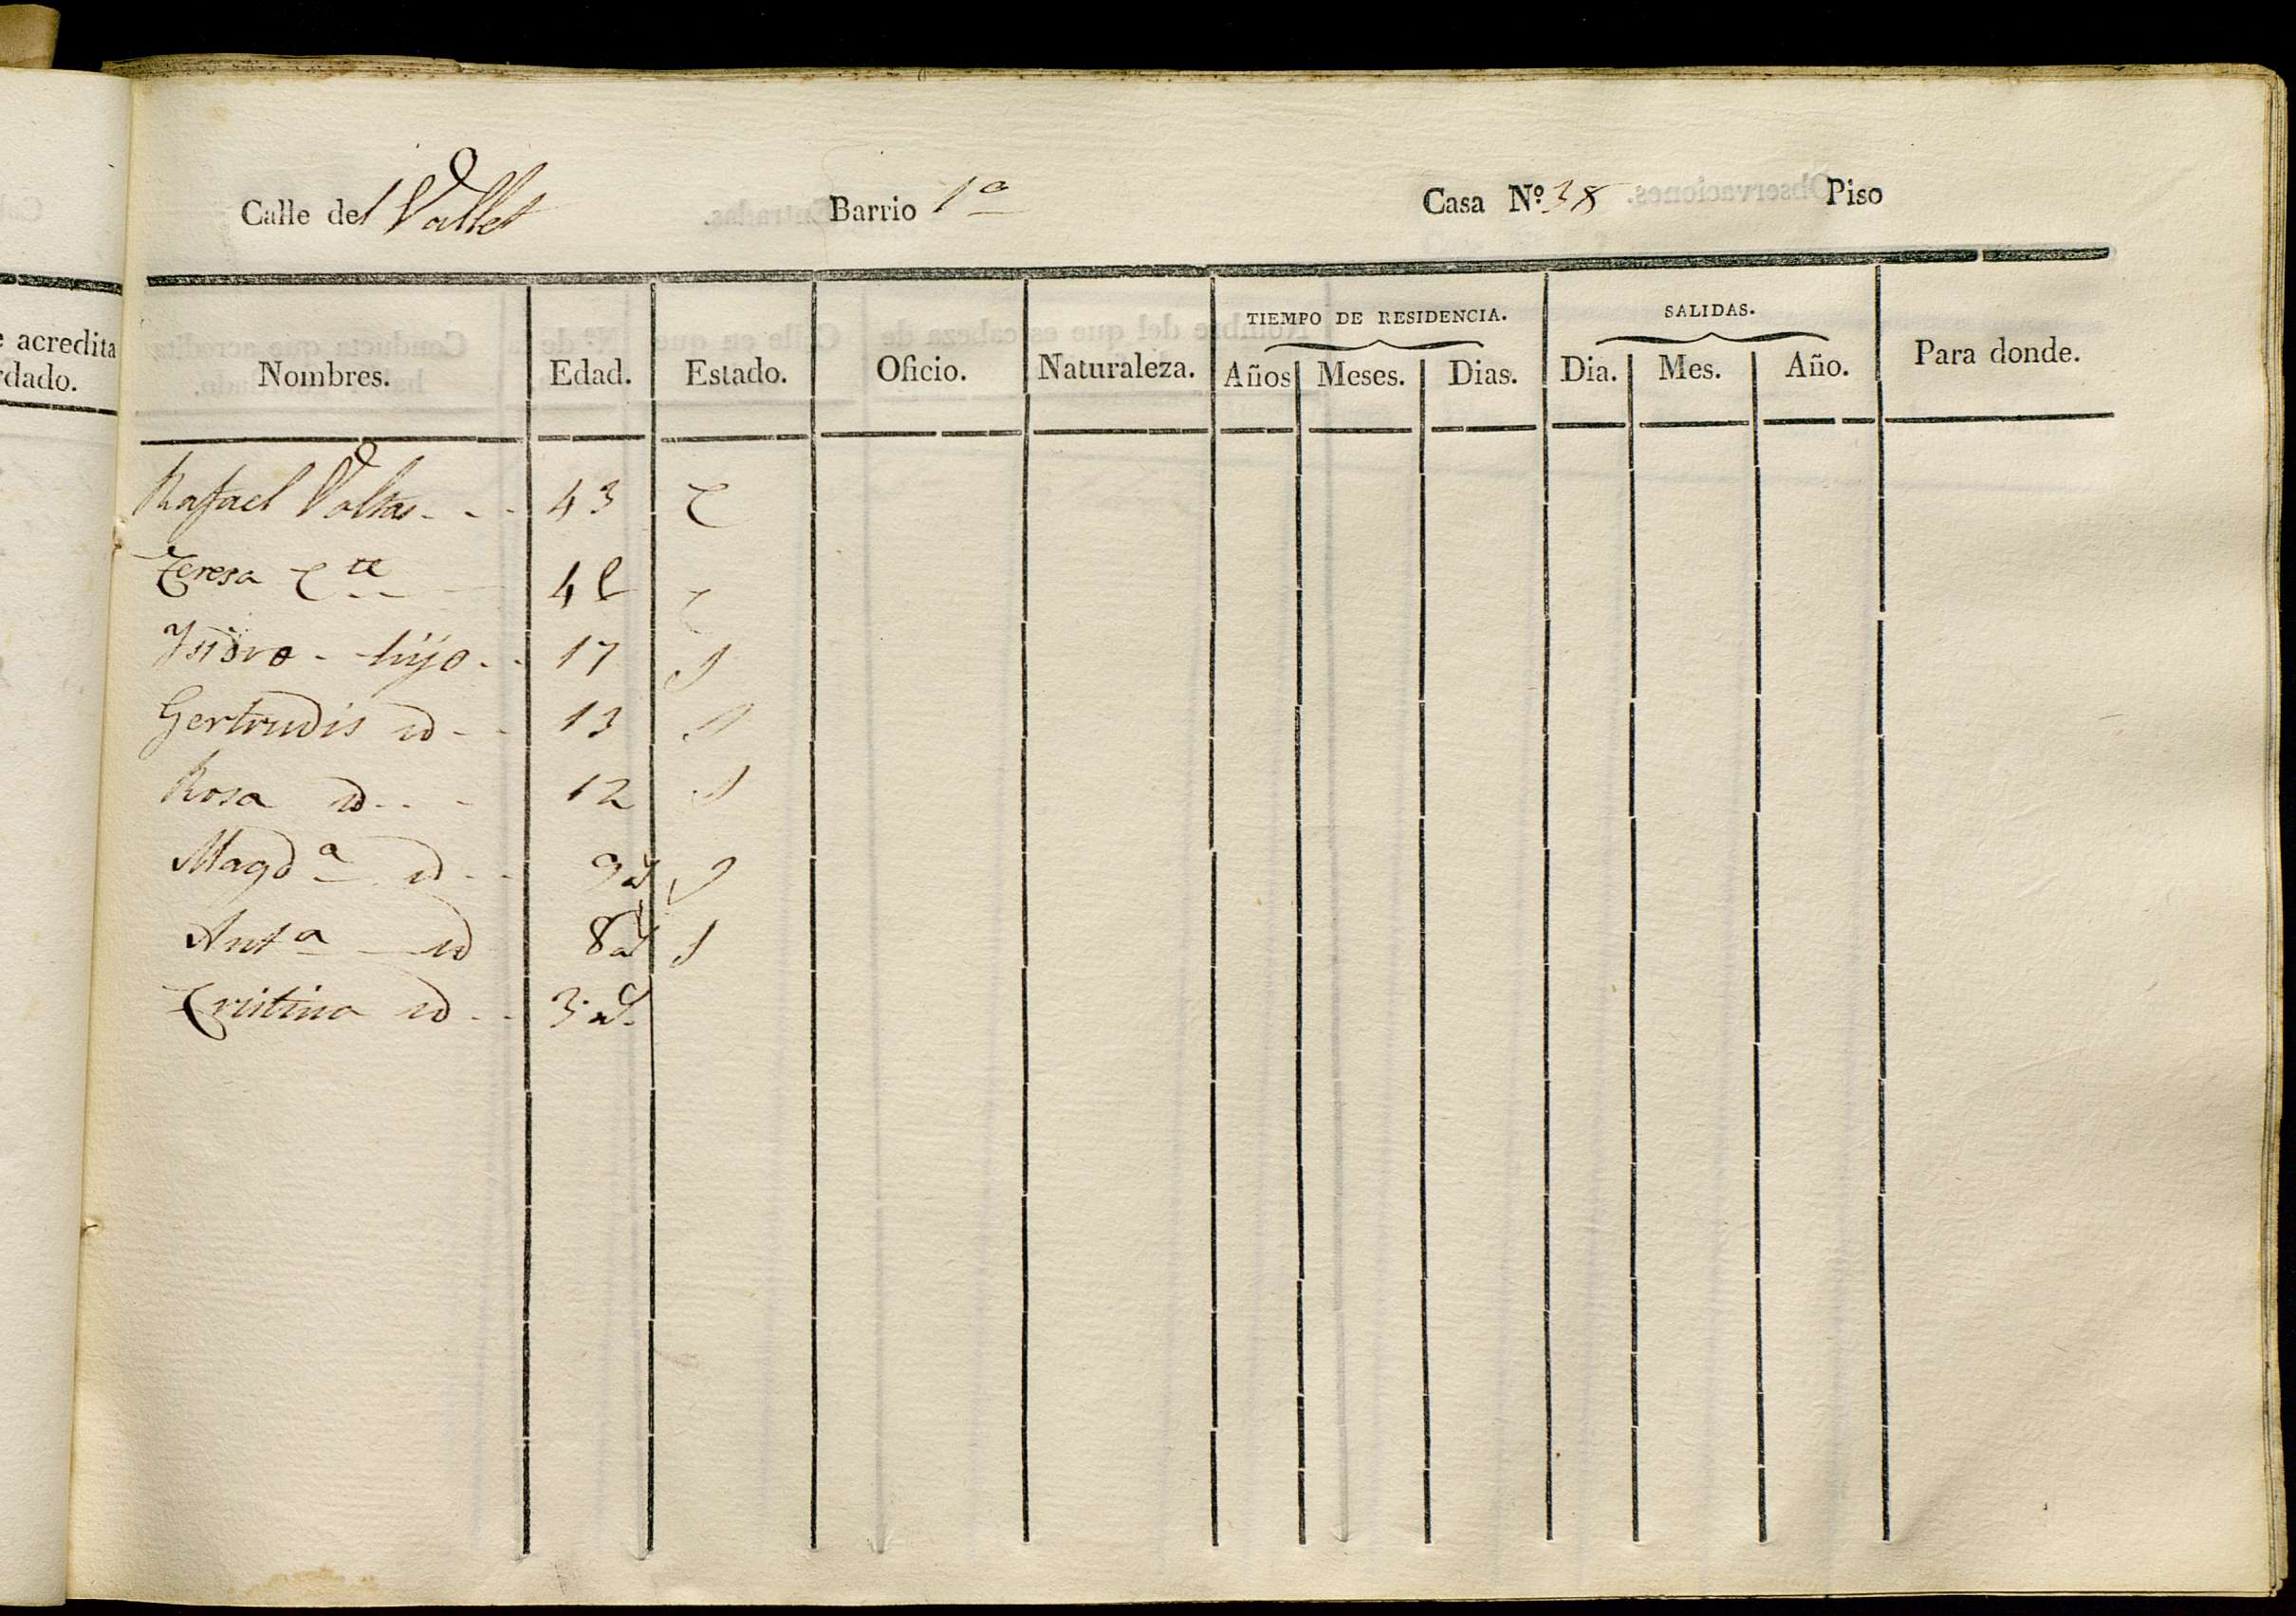 e acredita
rdado.
Calle del Vallet Barrio 1ª Casa Nº 38 Piso
TIEMPO DE RESIDENCIA. SALIDAS.
Nombres. Edad. Estado. Oficio. Naturaleza. Años Meses. Dias. Dia. Mes. Año. Para donde.
Rafael Voltas - - - 43 C
Teresa C.te - 42 C
Ysidro - hijo - - 17 S
Gertrudis id - - 13 S
Rosa id - - - 12 S
Magdª id - - 9 aˢ S
Antª - id 8 aˢ S
Cristina id - - 3 aˢ